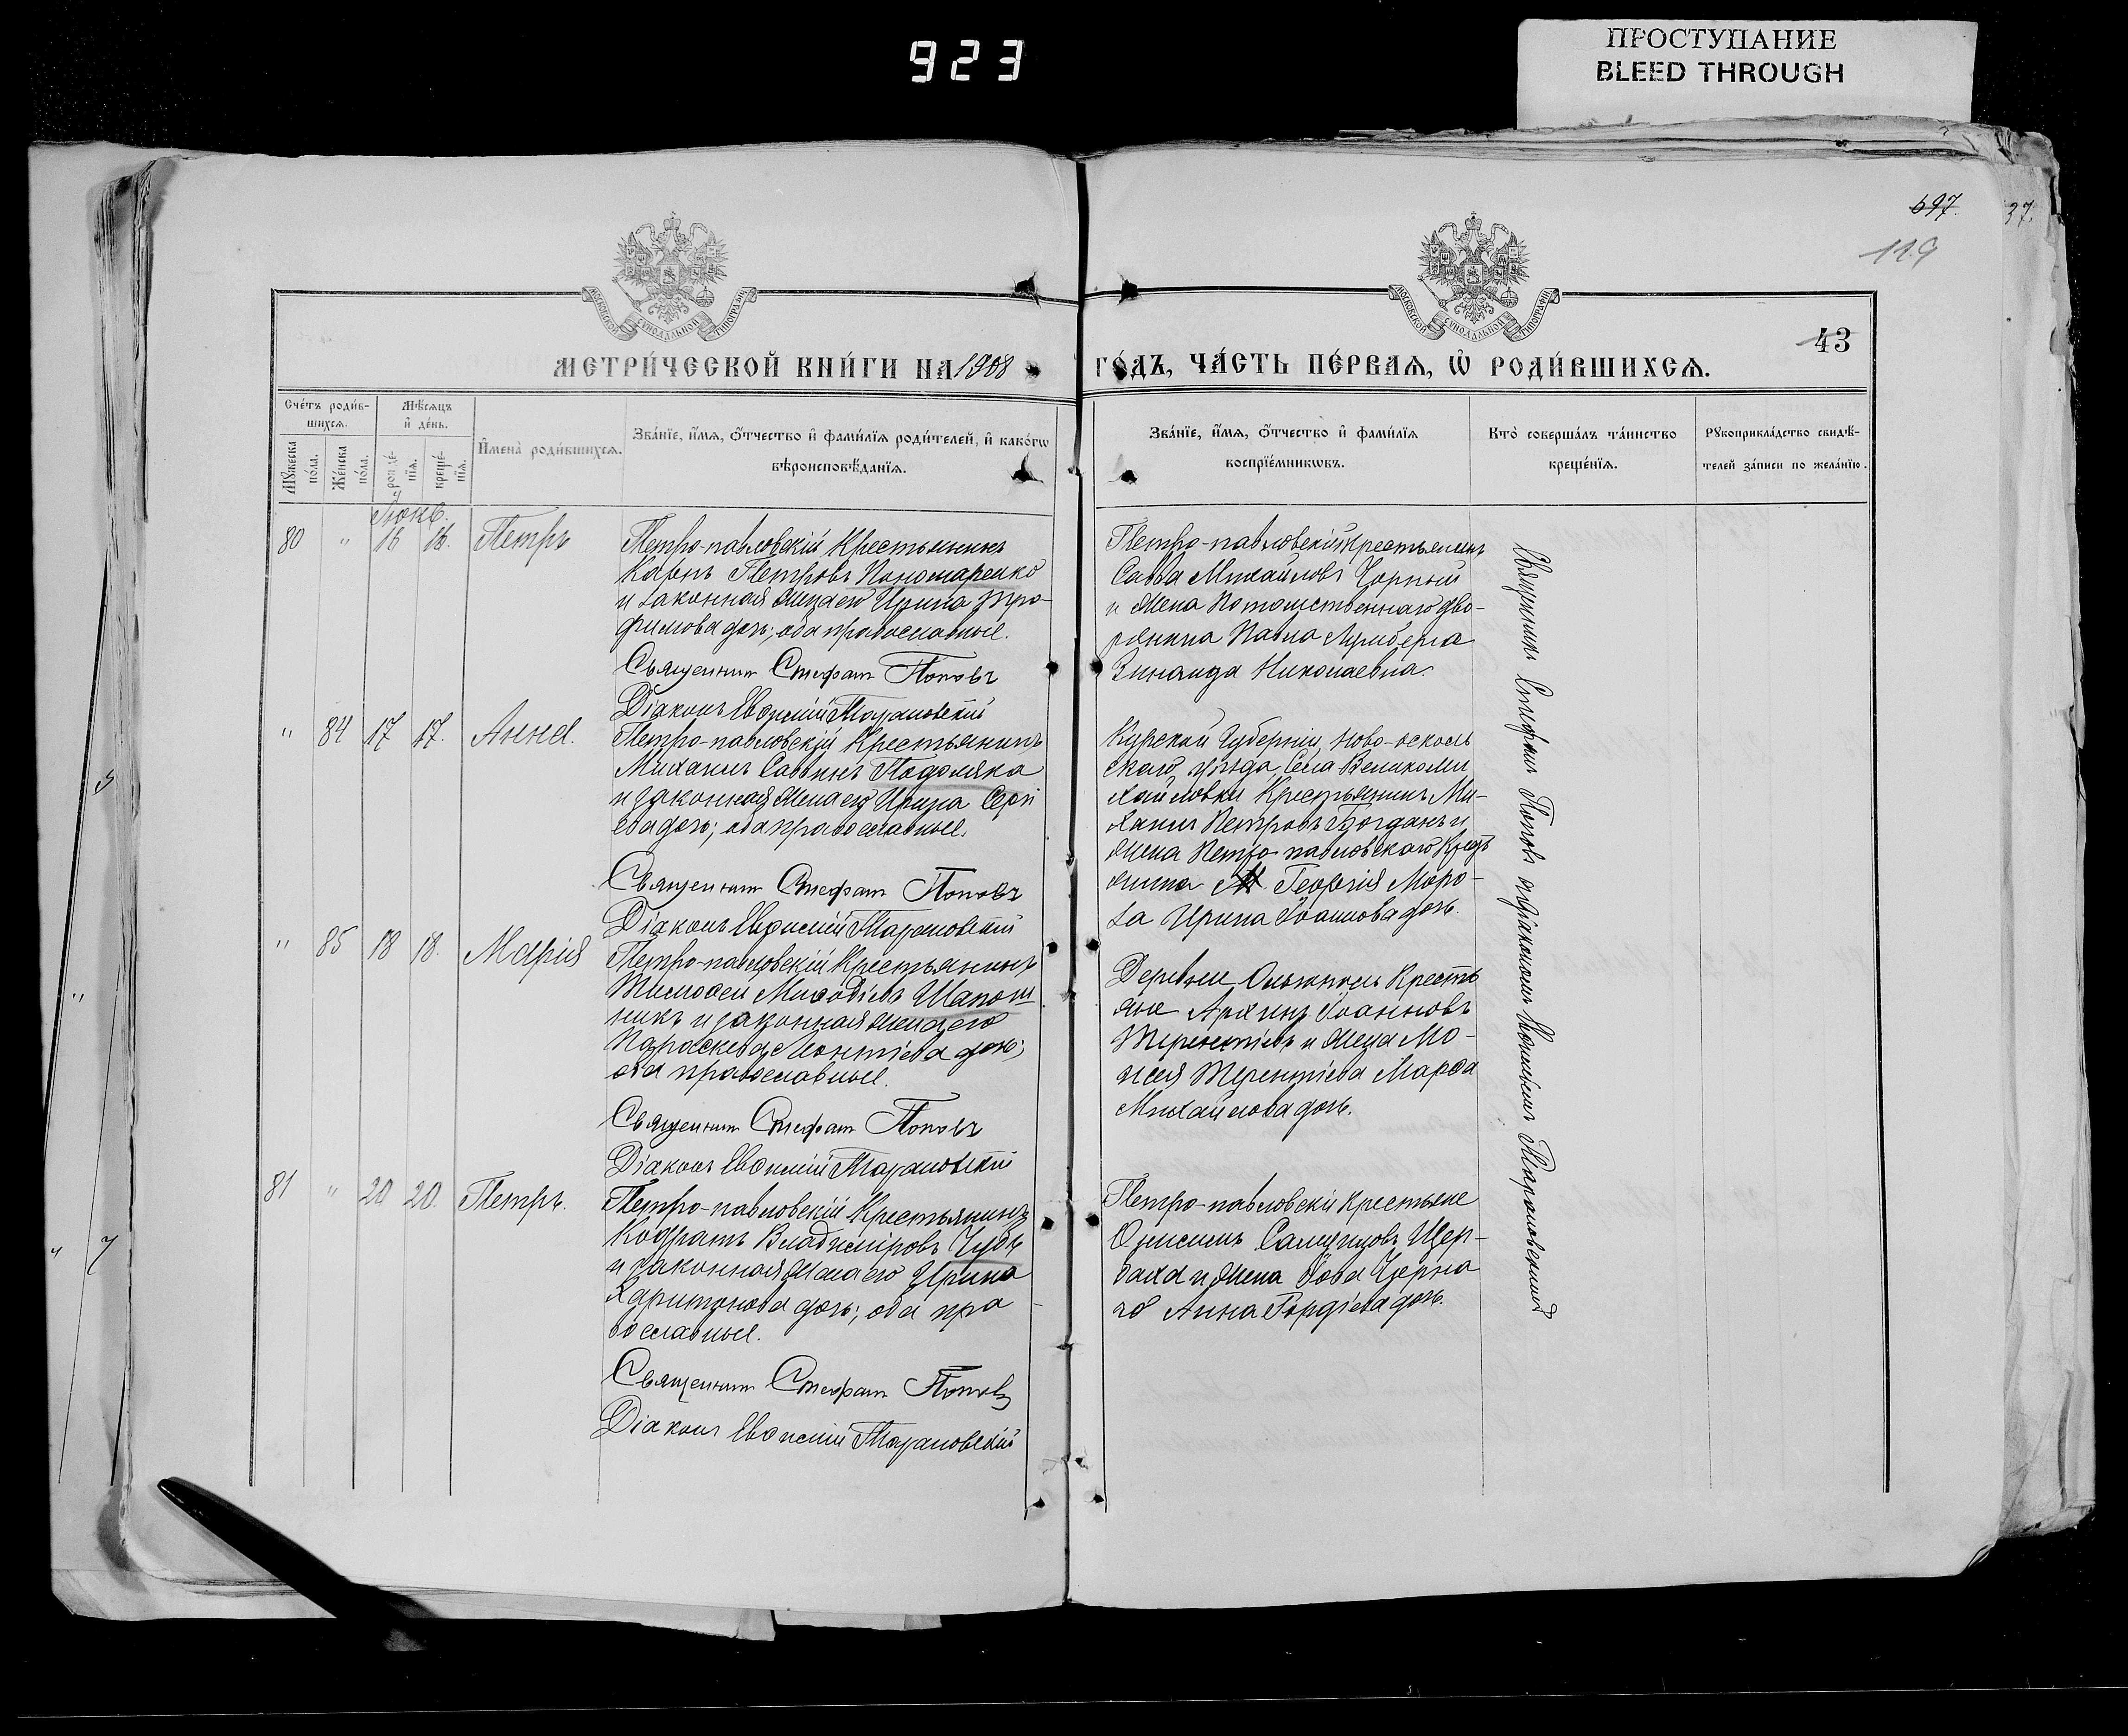 923
ПРОСТУПАНИЕ
BLEED THROUGH
697.
37.
119
МОСКОВСКОЙ СѴНОДАЛЬНОЙ ТИПОГРАФІИ
МОСКОВСКОЙ СѴНОДАЛЬНОЙ ТИПОГРАФІИ
43
МЕТРИ́ЧЕСКОЙ КНИ́ГИ НА 1908
ГО́ДЪ, ЧА́СТЬ ПЕ́РВАѦ, Ѡ҆ РОДИ́ВШИХСѦ.
Сче́тъ роди́в-
шихсѧ.
Мѣ́сѧцъ
и҆ де́нь.
Мꙋ́жеска
по́ла.
Же́нска
по́ла.
рожде́-
нїѧ.
креще́-
нїѧ.
И҆мена̀ роди́вшихсѧ.
Зва́нїе, и҆́мѧ, ѻ҆́тчество и҆ фами́лїѧ роди́телей, и҆ како́гѡ
вѣроисповѣ́данїѧ.
Зва́нїе, и҆́мѧ, ѻ҆́тчество и҆ фами́лїѧ
воспрїе́мникѡвъ.
Кто̀ соверша́лъ та́инство
креще́нїѧ.
Рꙋкоприкла́дство свидѣ́-
телей за́писи по жела́нїю.
80 " 16 16. Петръ
Петро-павловскій Крестьянинъ
Карпъ Петровъ Пономаренко
и законная жена его Ирина Тро-
фимова дочь; оба православные.
Священникъ Стефанъ Поповъ
Діаконъ Евфимій Тарановскій
Петро-павловскій Крестьянинъ
Савва Михайловъ Чорный
и жена Потомственнаго дво-
рянина Павла
Зинаида Николаевна.
" 84 17 17. Анна.
Петро-павловскій Крестьянинъ
Михаилъ Саввинъ Подоляка
и законная жена его Ирина Сергі
ева дочь; оба православные.
Священникъ Стефанъ Поповъ
Діаконъ Евфимій Тарановскій
Курской Губерніи, Ново-осколь
скаго уѣзда, Села Великоми
хайловки Крестьянинъ Ми-
хаилъ Петровъ Богданъ и
жена Петро-павловскаго Крест
янина Георгія Моро-
за Ирина Іоаннова дочь.
" 85 18 18. Марія
Петро-павловскій Крестьянинъ
Тимофей Меѳодіевъ Шапош
никъ и законная жена его
Параскева Леонтіева дочь;
оба православные.
Священникъ Стефанъ Поповъ
Діаконъ Евфимій Тарановскій
Деревни Кресть
яне Архипъ Іоанновъ
Терентіевъ и жена Мо-
исея Терентіева Марѳа
Михайлова дочь.
81 " 20 20. Петръ.
Петро-павловскій Крестьянинъ
Кодратъ Владиміровъ Чубъ
и законная жена его Ирина
Харитонова дочь; оба пра
вославные.
Священникъ Стефанъ Поповъ
Діаконъ Евфимій Тарановскій
Петро-павловскіе Крестьяне
Онисимъ Щер-
баха и жена Іова Черна
го Анна Гордіева дочь.
Священникъ Стефанъ Поповъ съ діакономъ Евфиміемъ Тарановскимъ